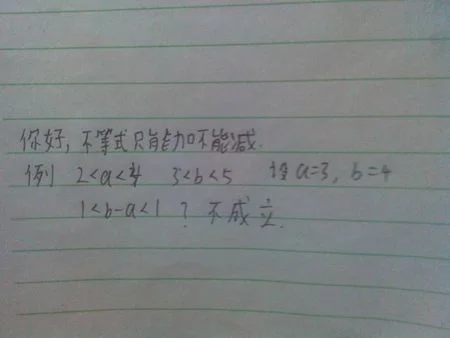 你好,不等式只能加不能减.
例 2<a<4 3<b<5 设a=3, b=4
1<b-a<1 ? 不成立.